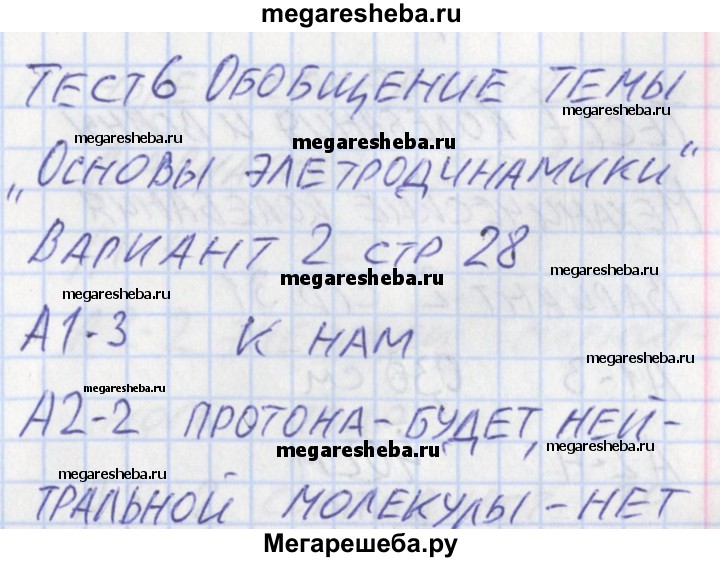 megaresheba.ru
ТЕСТ6 ОБОБЩЕНИЕ ТЕМЫ
megaresheba.ru megaresheba.ru megaresheba.ru
„ОСНОВЫ ЭЛЕТРОДИНАМИКИ“
megaresheba.ru megaresheba.ru
ВАРИАНТ 2 СТР 28
megaresheba.ru megaresheba.ru megaresheba.ru
А1-3 К НАМ
megaresheba.ru megaresheba.ru
А2-2 ПРОТОНА-БУДЕТ, НЕЙ-
megaresheba.ru megaresheba.ru megaresheba.ru
ТРАЛЬНОЙ МОЛЕКУЛЫ-НЕТ
megaresheba.ru megaresheba.ru
Мегарешеба.ру